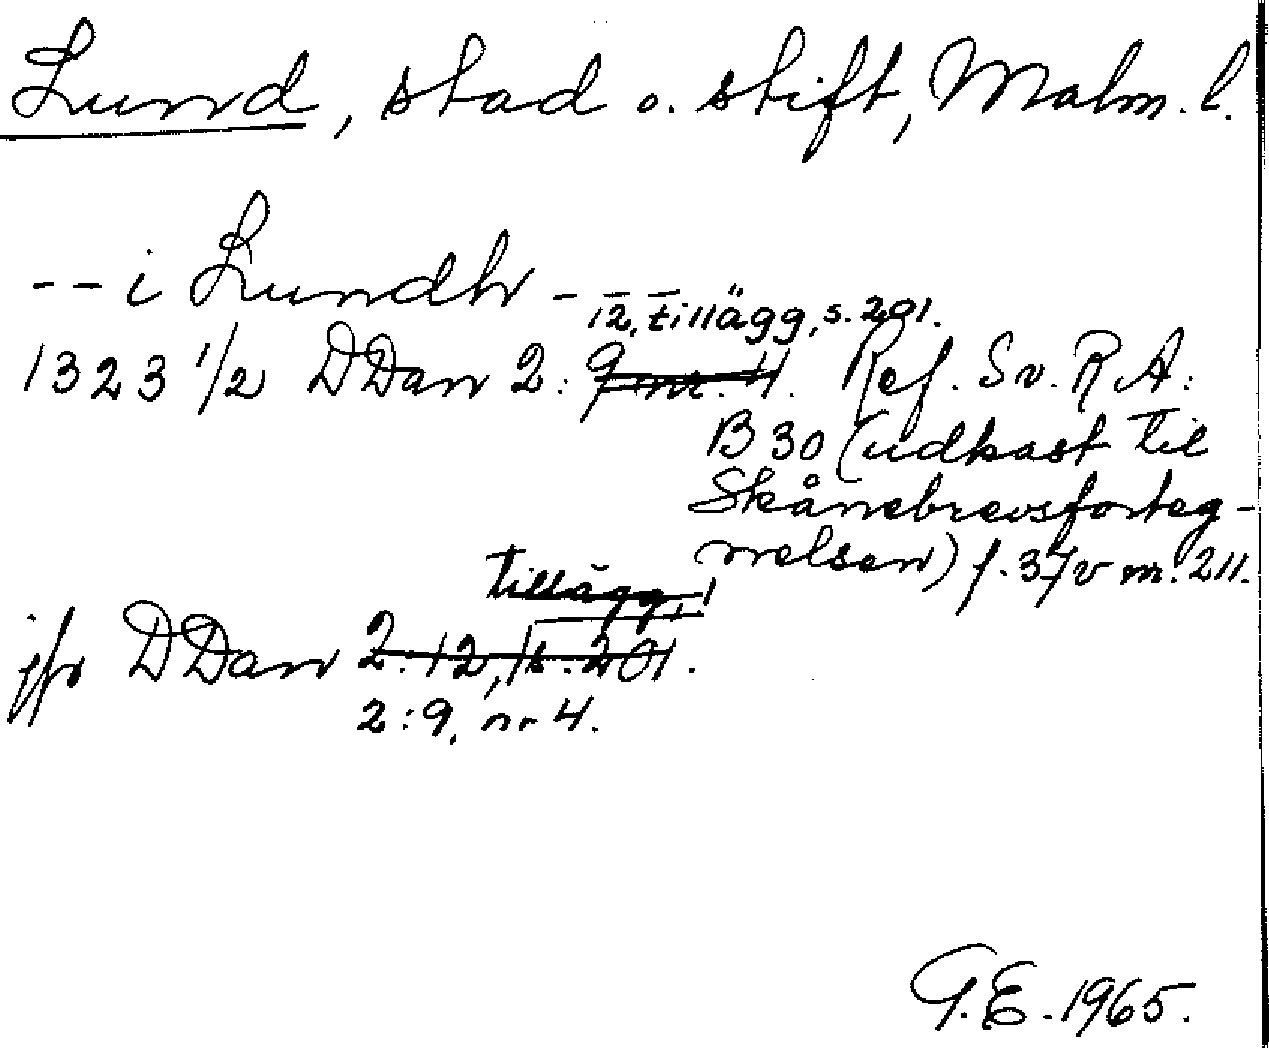 Lund, stad o. stift, Malm. l.
-- i Lundh ---
12, tillägg, s. 201.
1323 1/2 DDan 2: 9 nr. 4. Ref. Sv. R.A:
B 30 (udkast til
Skånebrevsforteg-
nelsen) f. 37v nr. 211.
tillägg,
jfr DDan 2:12, s. 201.
2:9, nr 4.
G.E. 1965.